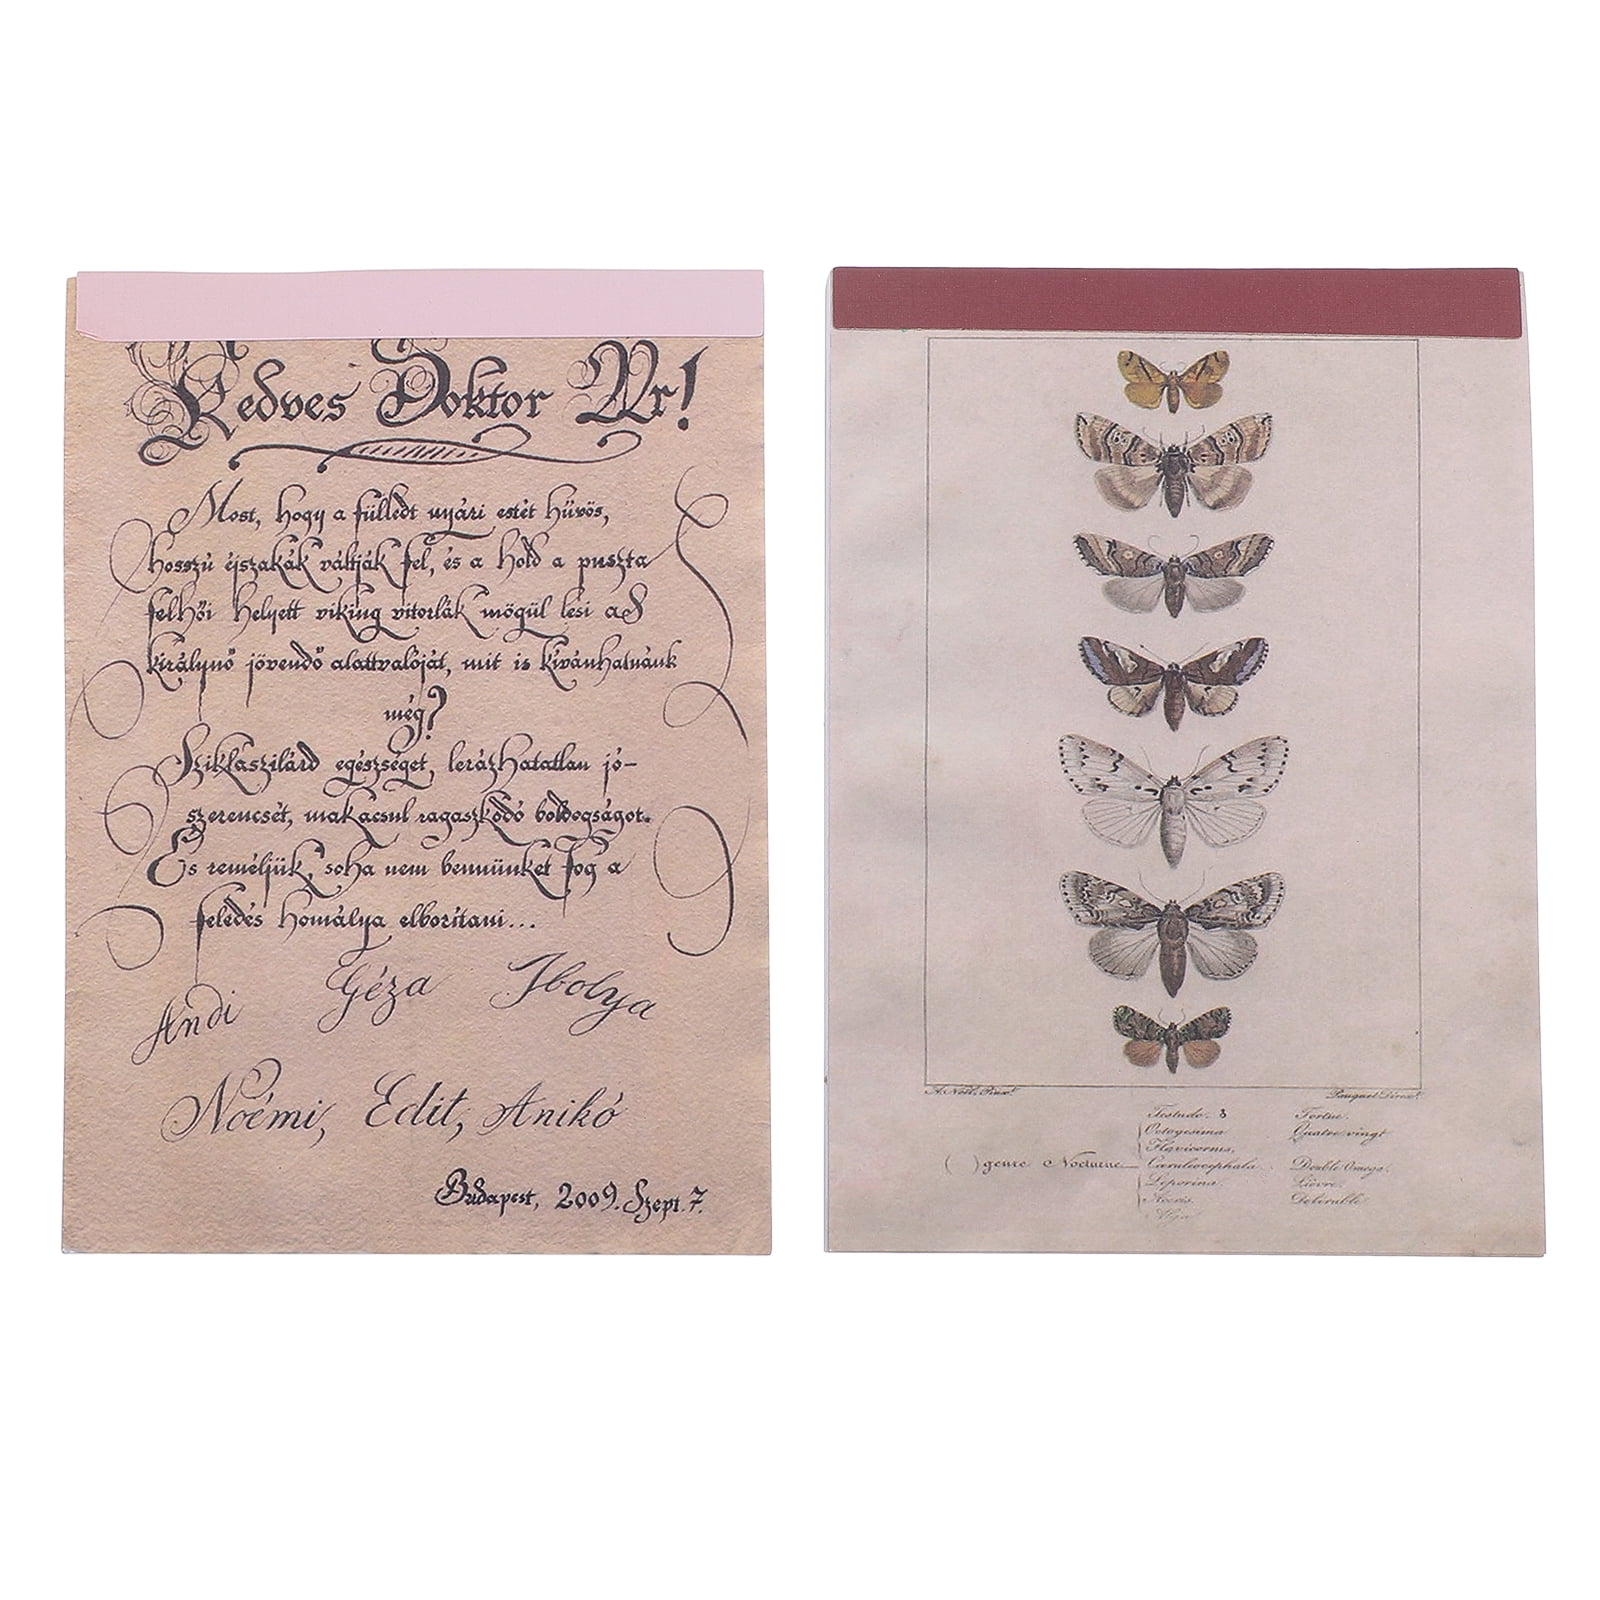 Kedves Doktor Úr!
Most, hogy a fülledt nyári estét hűvös,
hosszú éjszakák váltják fel, és a hold a puszta
felhői helyett viking vitorlák mögül lesi ad
királynő jövendő alattvalóját, mit is kívánhatnánk
még?
Sziklaszilárd egészséget, lerázhatatlan jó-
szerencsét, makacsul ragaszkodó boldogságot.
És reméljük, soha nem bennünket fog a
feledés homálya elborítani...
Andi Géza Ibolya
Noémi, Edit, Anikó
Budapest, 2009. Szept. 7.
A. Noël, Pinxt. Pauquet Dirext.
Testudo. 8 Tortue.
Octogesima Quatre vingt
Flavicornis.
( ) genre Nocturne Cæruleocephala. Double Omega.
Leporina. Lièvre.